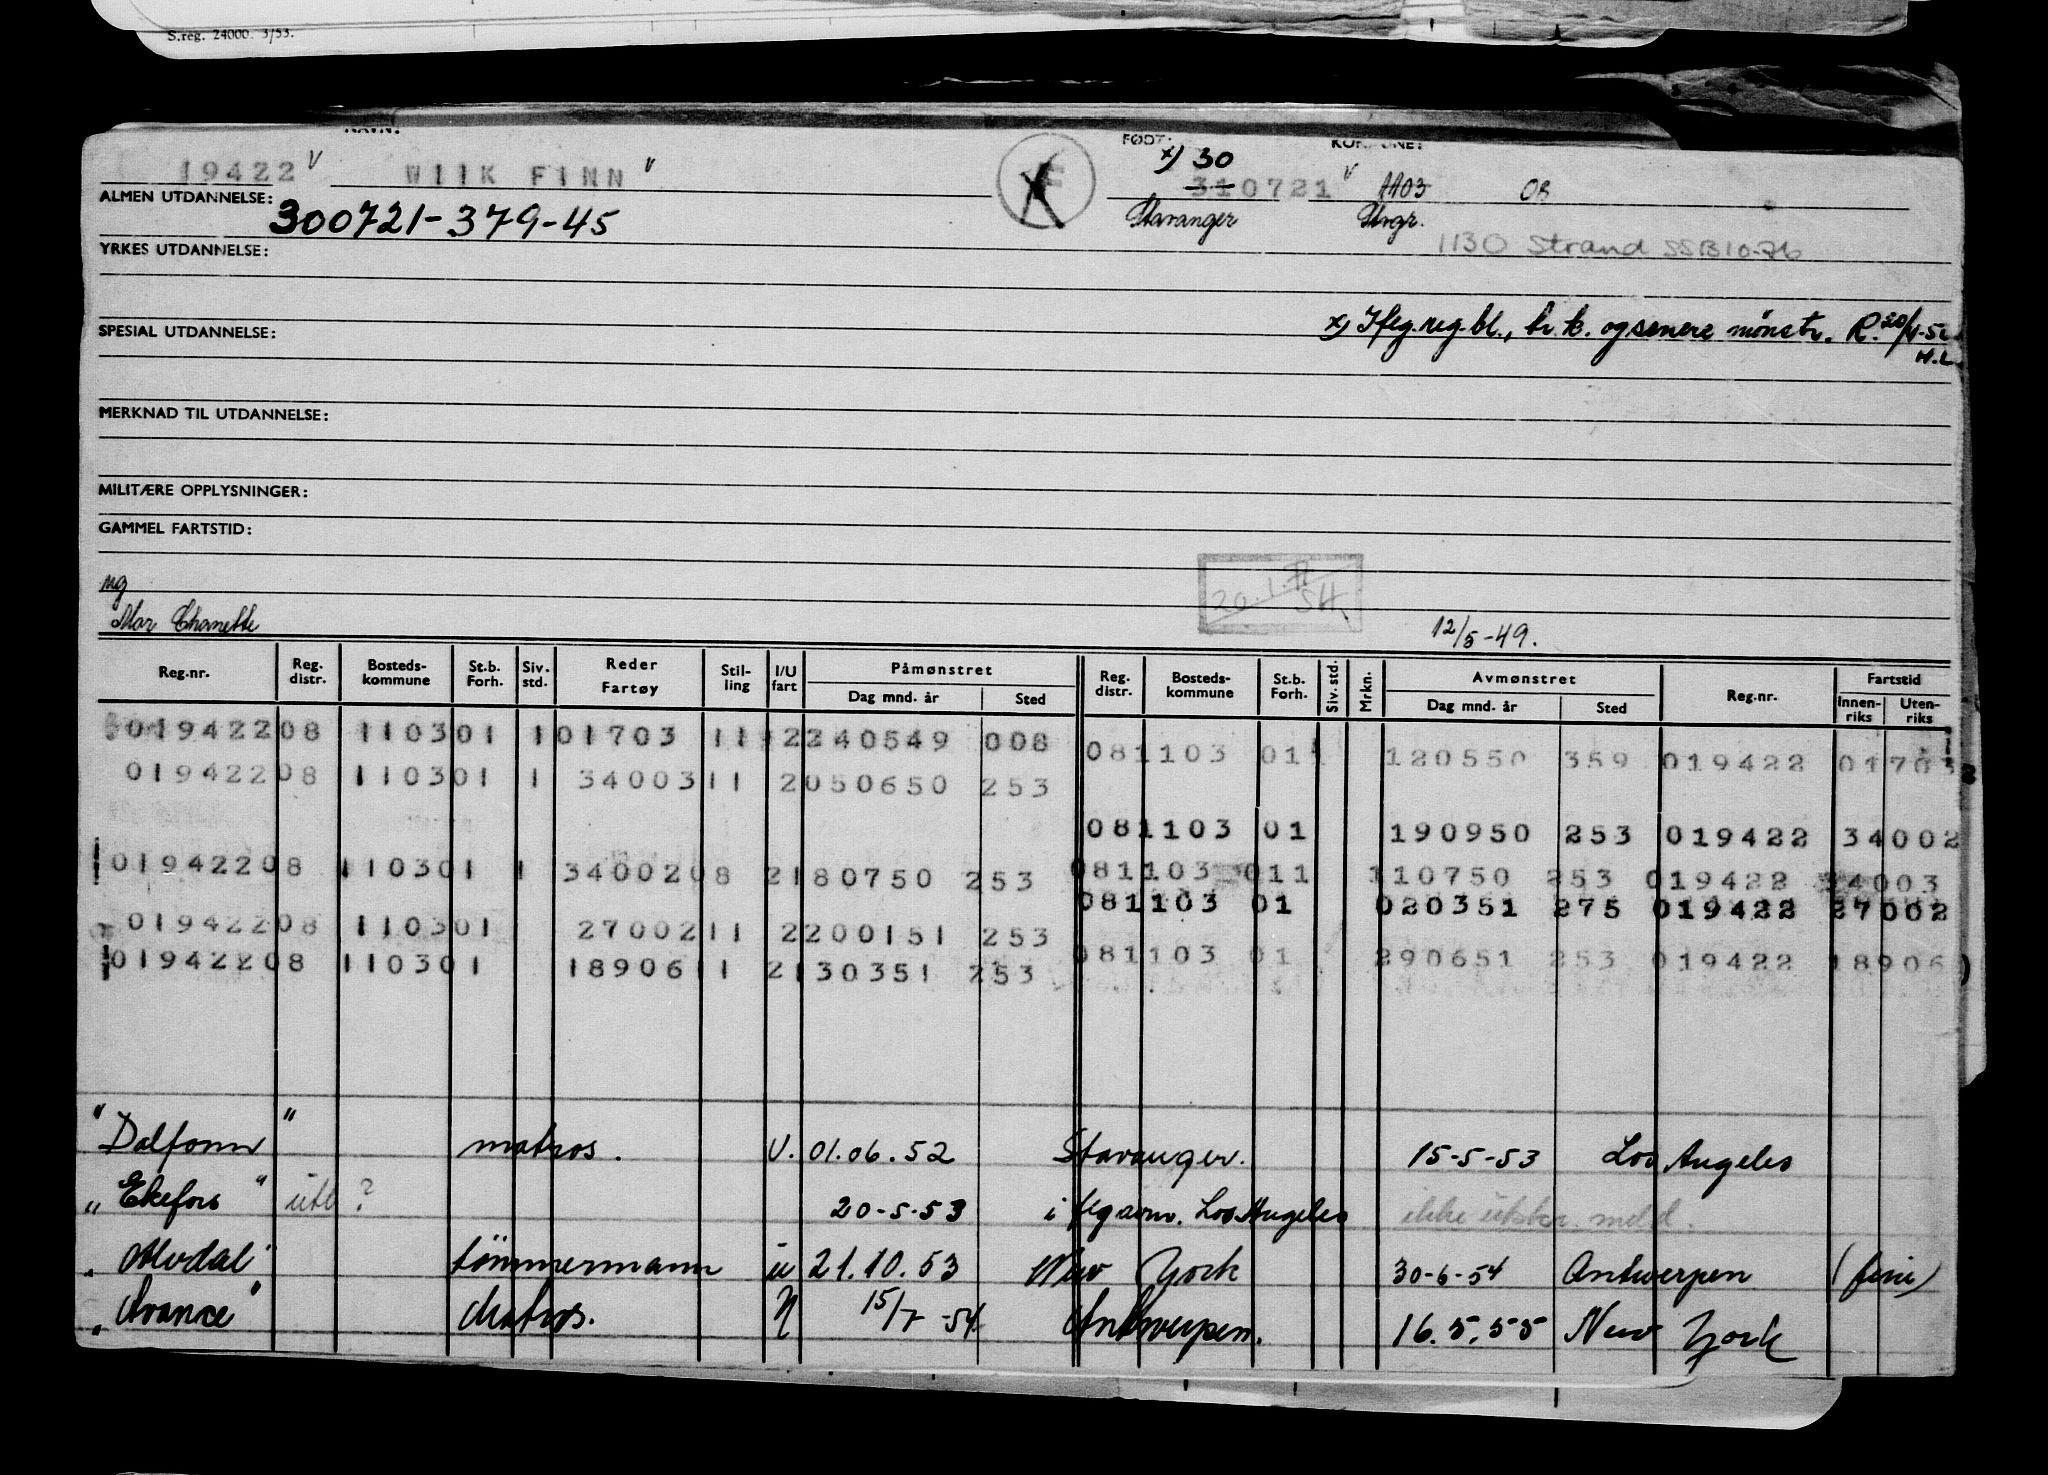 S.reg. 24000. 3/53.
NAVN: FØDT: KOMMUNE:
x) 30
19422 v WIIK FINN " 310721 v 1103 OB
ALMEN UTDANNELSE: 300721-379-45 Stavanger Stvgr.
YRKES UTDANNELSE: 1130 Strand SSB10-76
SPESIAL UTDANNELSE: x) Iføg.reg.bl., br.k. og senere mønstr. R. 20/4-52
H.L.
MERKNAD TIL UTDANNELSE:
MILITÆRE OPPLYSNINGER:
GAMMEL FARTSTID:
ug
Mar Chanette 12/5-49.
Reg.nr. Reg. distr. Bosteds-kommune St.b. Forh. Siv. std. Reder Fartøy Stil-ling I/U fart Påmønstret Dag mnd. år Sted Reg. distr. Bosteds-kommune St.b. Forh. Siv. std. Mrkn. Avmønstret Dag mnd. år Sted Reg.nr. Fartstid Innen-riks Uten-riks
01942208 110301 101703 11 2240549 008 081103 011 120550 359 019422 01703
01942208 110301 1 3400311 2050650 253
081103 01 190950 253 019422 34002
01942208 110301 1 3400208 2180750 253 081103 011 110750 253 019422 34003
081103 01 020351 275 019422 27002
01942208 110301 2700211 2200151 253
01942208 110301 1890611 2130351 253 081103 01 290651 253 019422 18906
"Dalfonn" matros. U. 01.06.52 Stavanger. 15-5-53 Los Angeles
"Ekefors" utl ? 20-5-53 i flg avm. Los Angeles ikke utskr. meld.
"Alvdal" tömmermann u 21.10.53 New York 30-6-54 Antwerpen
"Avance" Matros. U 15/7-54 Antwerpen. 16.5.55 New York